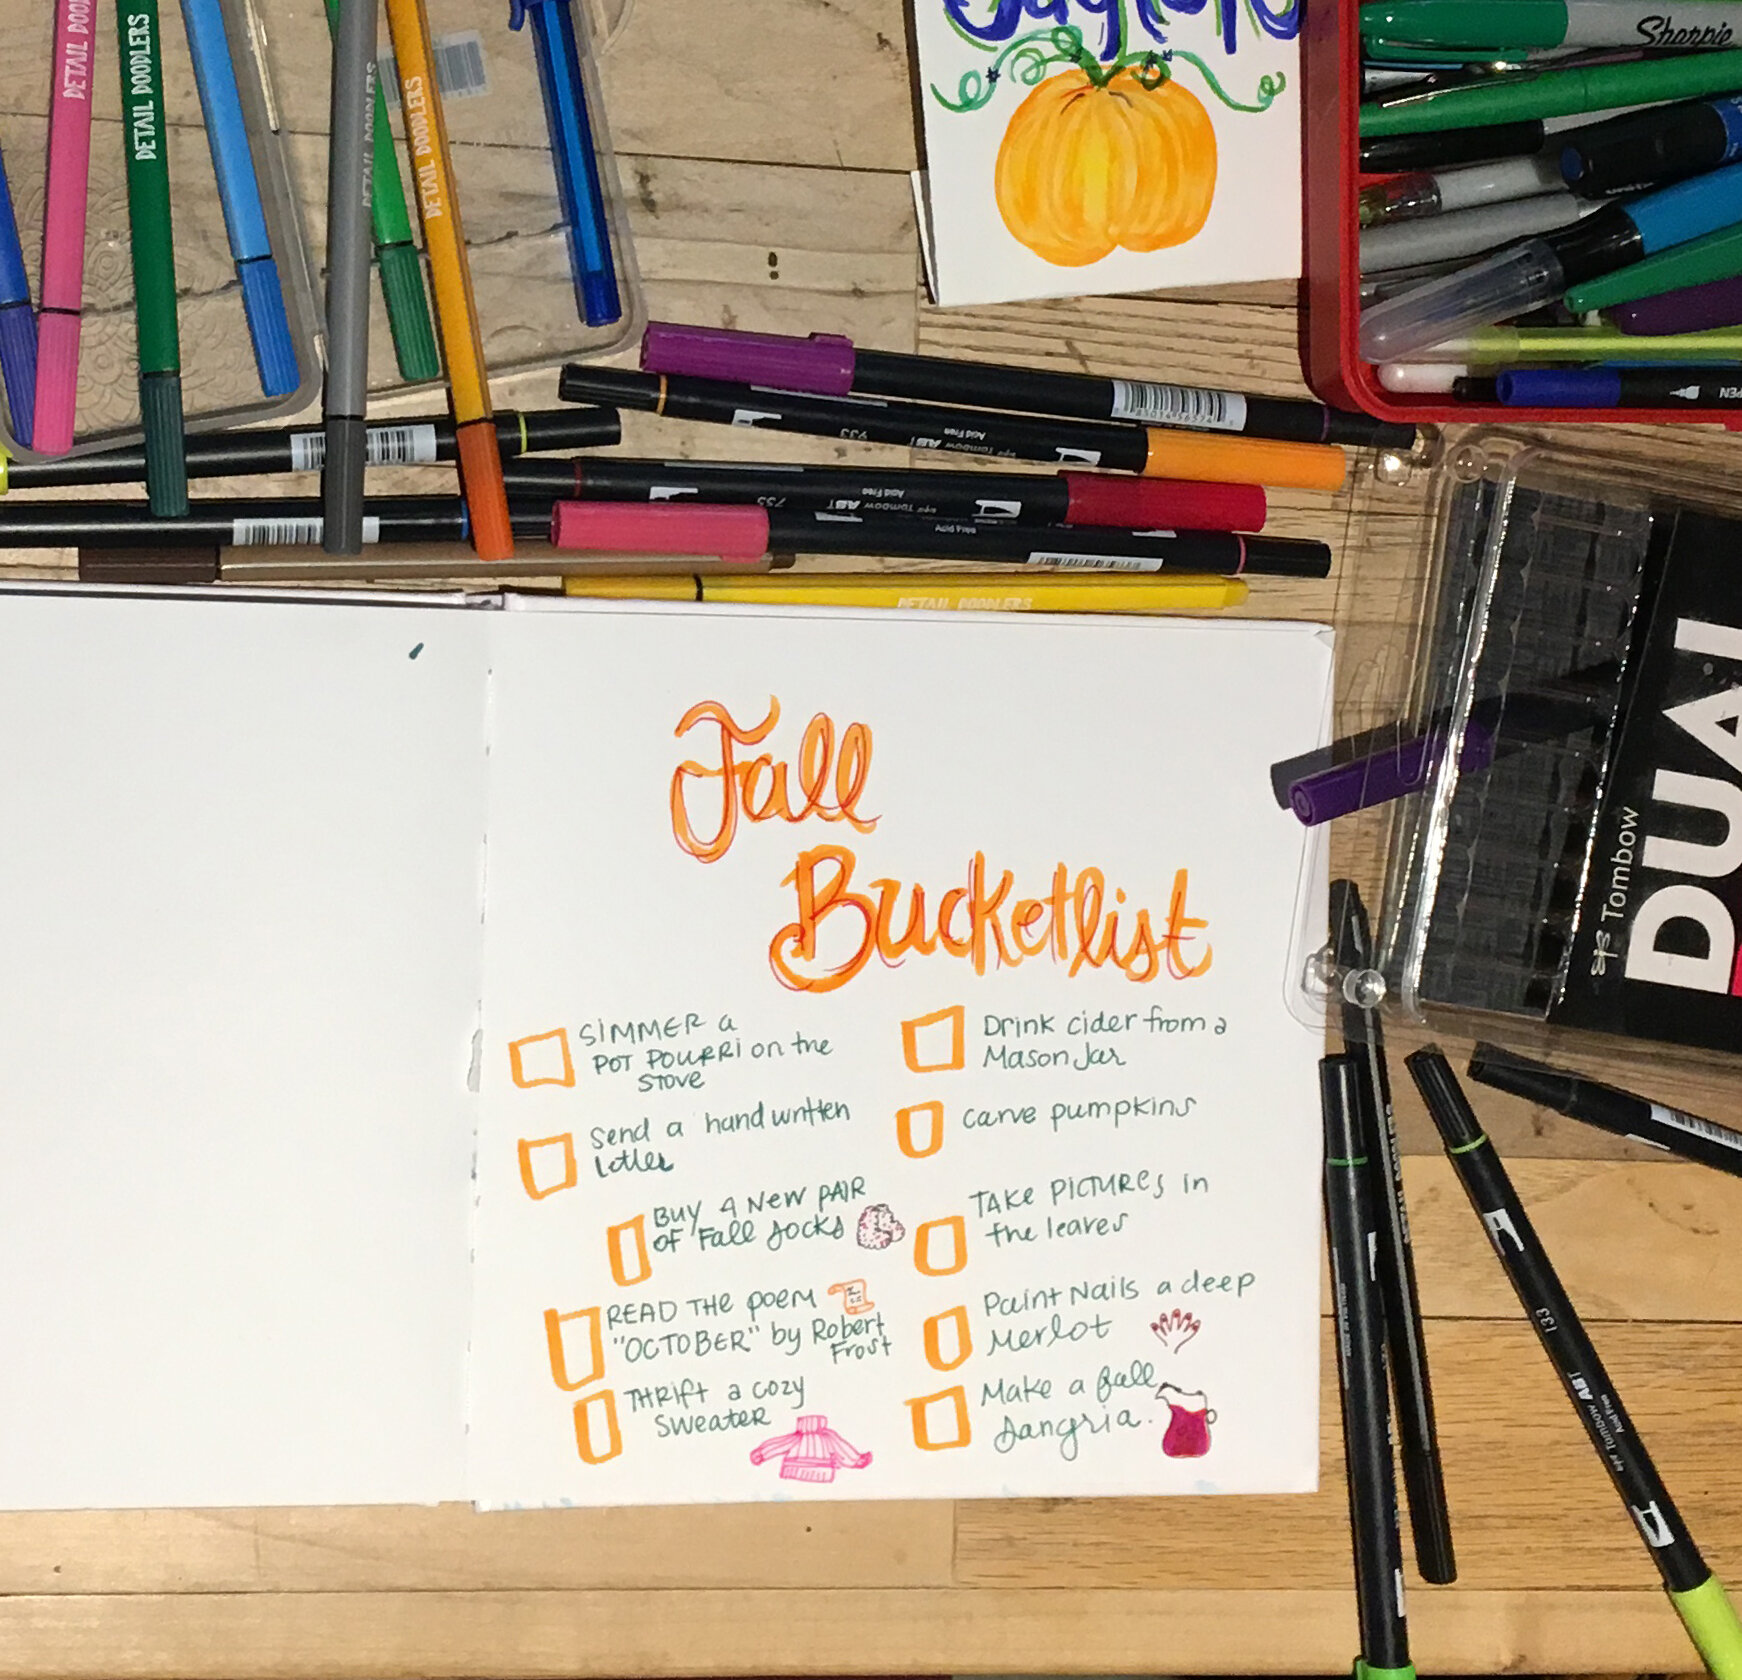 DETAIL DOODLERS
DETAIL DOODLERS
DETAIL DOODLERS
DETAIL DOODLERS
Sharpie
PEN
933
Tombow ABT
Acid Free
755
Tombow ABT
Acid Free
DETAIL DOODLERS
Tombow
DUAL
Fall
Bucketlist
SiMMER a
POT POURRI on the
STOVE
Send a handwritten
Letter
BUY A NEW PAIR
OF Fall Socks
READ THE POEM
"OCTOBER" by Robert
Frost
THRift a cozy
Sweater
Drink cider from a
Mason Jar
carve pumpkins
TAKE PICTURES in
the leaves
Paint Nails a deep
Merlot
Make a fall
Sangria.
133
Tombow ABT
Acid Free